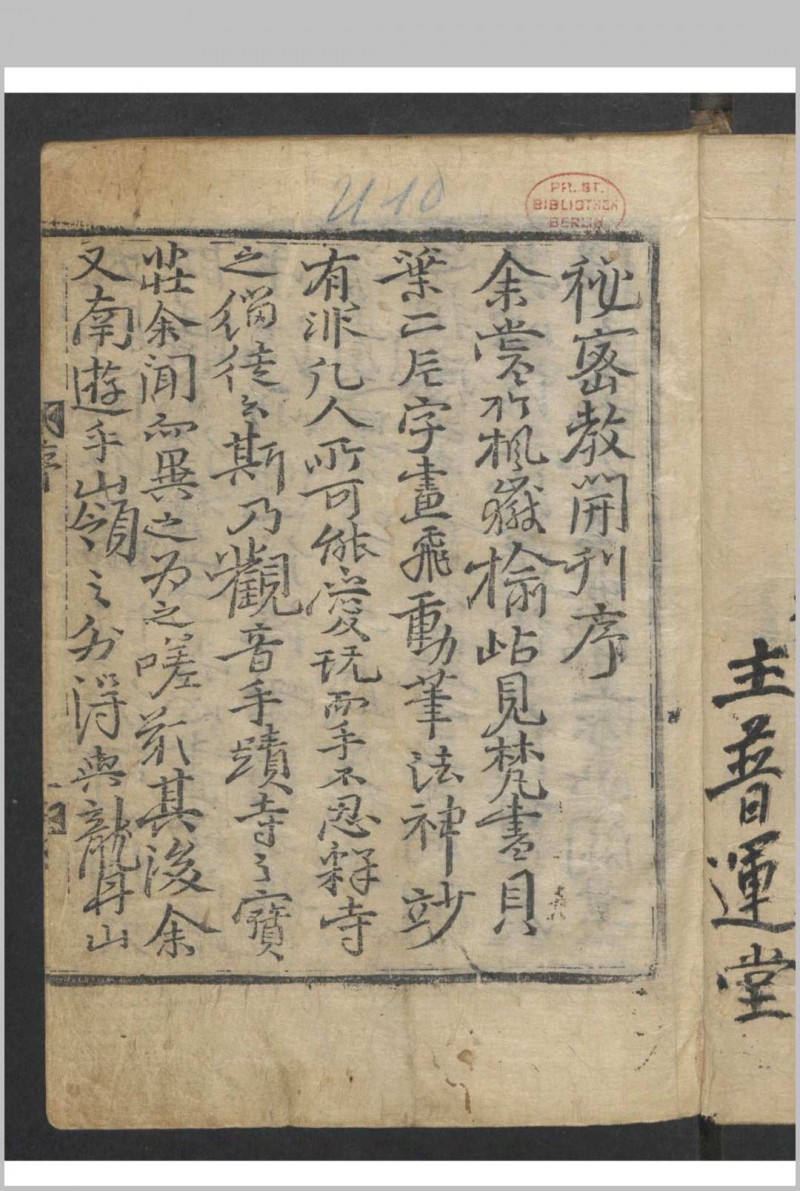 秘密教開刊序
余嘗於楓嶽楡岾見梵書貝
葉二片字畫飛動筆法神妙
有非凡人所可能愛玩而手不忍釋寺
之緇徒云斯乃觀音手蹟寺之寶
莊余聞而異之為之嗟
其後余
又南遊乎嶺之外得與龍井山
序
主普運堂
U 10
PR. ST.
BIBLIOTHEK
BERLIN